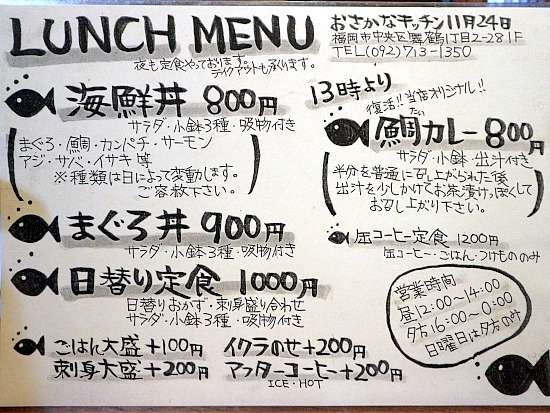 LUNCH MENU
夜も定食やっております。
テイクアウトも承ります。
おさかなキッチン11月24日
福岡市中央区舞鶴1丁目2-28 1F
TEL(092)713-1350
海鮮丼 800円
サラダ・小鉢3種・吸物付き
まぐろ・鯛・カンパチ・サーモン
アジ・サバ・イサキ 等
※種類は日によって変動します。
ご容赦下さい。
まぐろ丼 900円
サラダ・小鉢3種・吸物付き
日替り定食 1000円
日替りおかず・刺身盛り合わせ
サラダ・小鉢3種・吸物付き
ごはん大盛+100円 イクラのせ+200円
刺身大盛+200円 アフターコーヒー+200円
ICE・HOT
13時より
復活!!当店オリジナル!!
たい
鯛カレー 800円
サラダ・小鉢・出汁付き
半分を普通に召し上がられた後
出汁を少しかけてお茶漬けっぽくして
お召し上がり下さい。
缶コーヒー定食 1200円
缶コーヒー・ごはん・つけもののみ
営業時間
昼12:00〜14:00
夕方16:00〜0:00
日曜日は夕方のみ